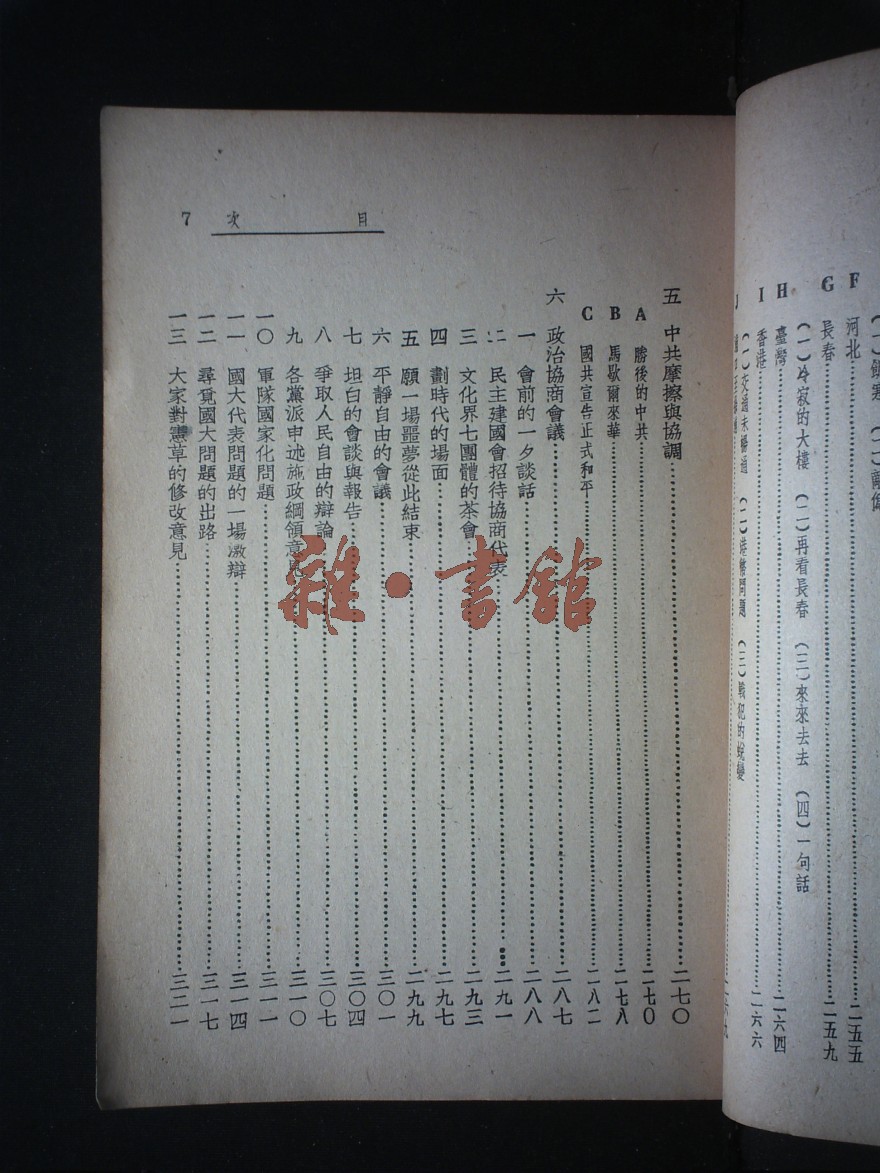 F 河北……二五五
G 長春……二五九
(一)冷寂的大樓 (二)再看長春 (三)來來去去 (四)一句話
H 臺灣……二六四
I 香港……二六六
(一)交通未暢通 (二)港幣問題 (三)戰犯的蛻變
J
目次 7
五 中共摩擦與協調……二七〇
A 勝後的中共……二七〇
B 馬歇爾來華……二七八
C 國共宣告正式和平……二八二
六 政治協商會議……二八七
一 會前的一夕談話……二八八
二 民主建國會招待協商代表……二九一
三 文化界七團體的茶會……二九三
四 劃時代的場面……二九七
五 願一場噩夢從此結束……二九九
六 平靜自由的會議……三〇一
七 坦白的會談與報告……三〇四
八 爭取人民自由的辯論……三〇七
九 各黨派申述施政綱領意見……三一〇
一〇 軍隊國家化問題……三一一
一一 國大代表問題的一場激辯……三一四
一二 尋覓國大問題的出路……三一七
一三 大家對憲草的修改意見……三二一
雜·書館